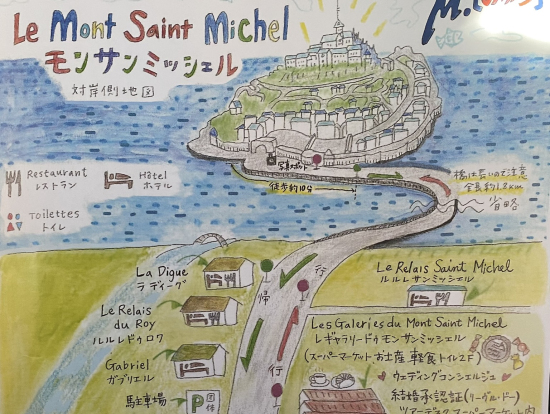 Le Mont Saint Michel
モンサンミッシェル
対岸側地図
Restaurant
レストラン
Hôtel
ホテル
Toilettes
トイレ
写真スポット
徒歩約10分
橋は長いので注意
全長約1.8km
省略
La Digue
ラディーグ
Le Relais
du Roy
ルルレドゥロワ
Gabriel
ガブリエル
駐車場
P
団体
帰
行
行
Le Relais Saint Michel
ルルレサンミッシェル
Les Galeries du Mont Saint Michel
レギャラリードゥモンサンミッシェル
(スーパーマーケット お土産 軽食 トイレ2F)
ウェディングコンシェルジュ
結婚承認証(リーヴル・ドー)